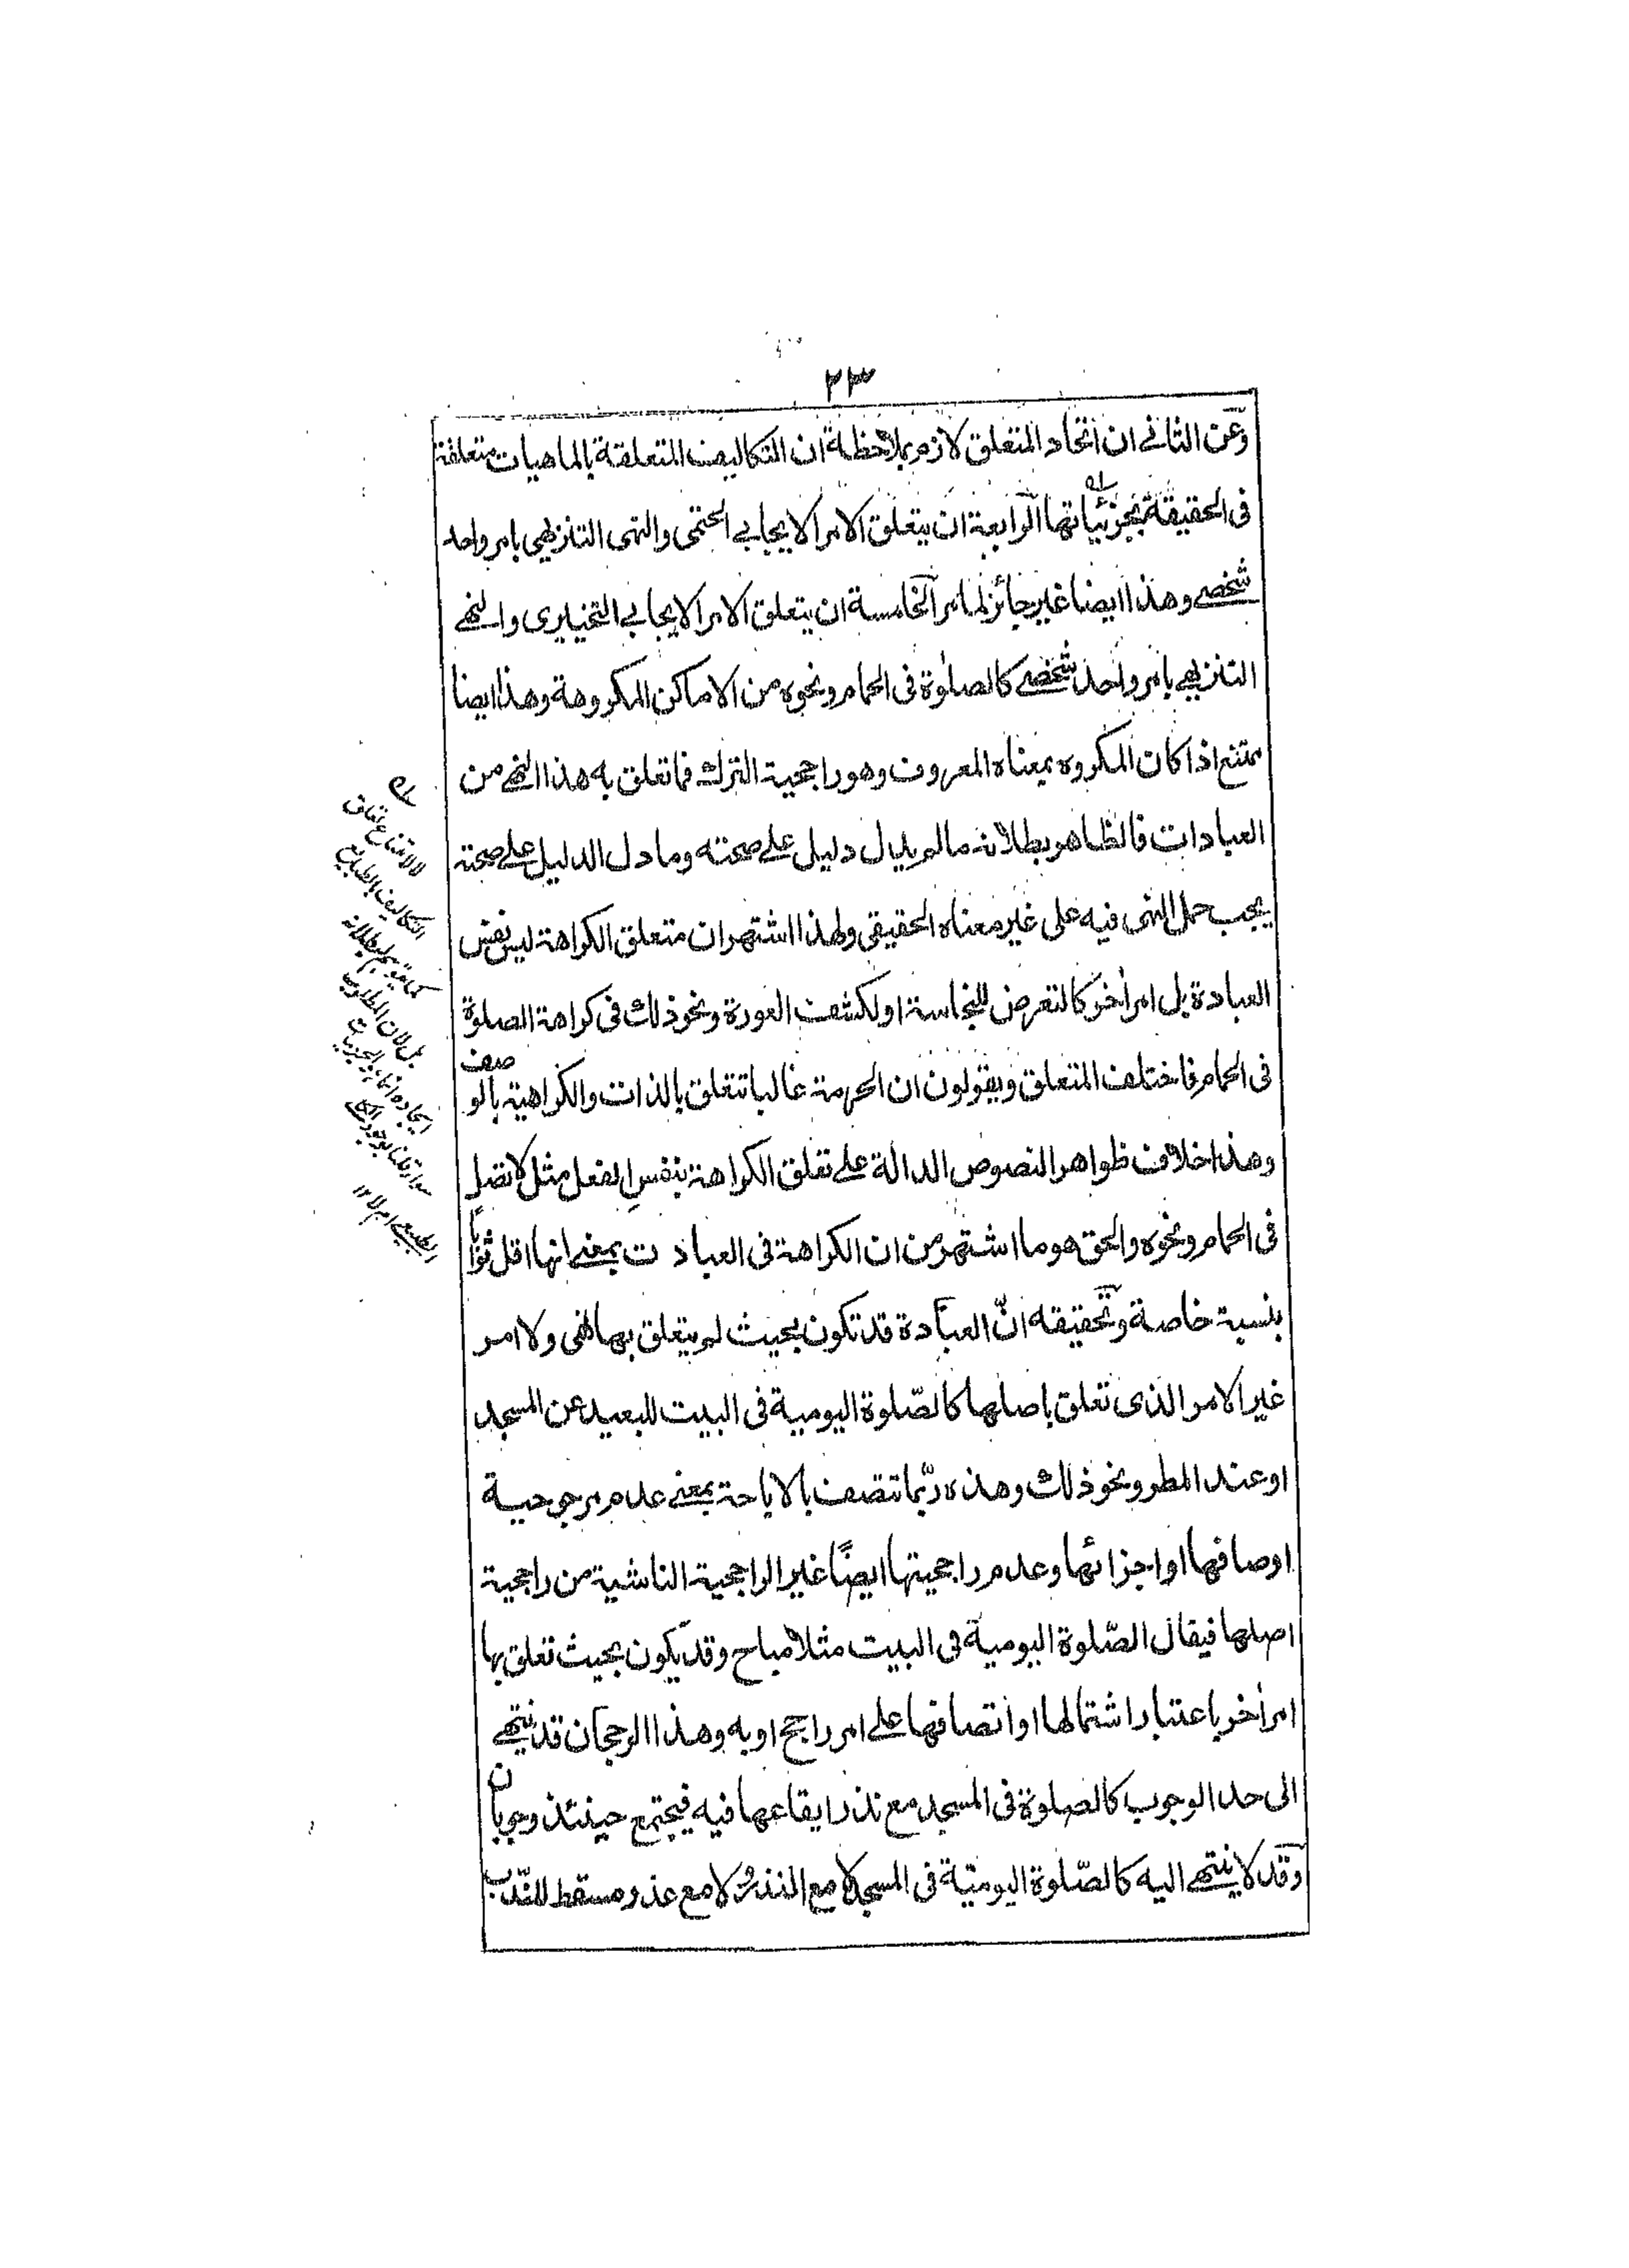 ٢٣
وعن الثانے ان اتحاد المتعلق لازم بملاحظة ان التكاليف المتعلقة بالماهيات متعلقة
فى الحقيقة بجزئياتها الرابعة ان يتعلق الامر الايجابے الحتمى والنهى التنزيهى بامر واحد
شخصے وهذا ايضا غير جائز لما مر الخامسة ان يتعلق الامر الايجابے التخييرى والنهے
التنزيهے بامر واحد شخصے كالصلوة فى الحمام ونحوه من الاماكن المكروهة وهذا ايضا
ممتنع اذا كان المكروه بمعناه المعروف وهو راجحية الترك فما تعلق به هذا النهے من
العبادات فالظاهر بطلانه مالم يدل دليل علے صحته وما دل الدليل علے صحته
يجب حمل النهى فيه على غير معناه الحقيقى ولهذا اشتهر ان متعلق الكراهة ليس نفس
العبادة بل امر اٰخر كالتعرض للنجاسة او لكشف العورة ونحو ذلك فى كراهة الصلوة
فى الحمام فاختلف المتعلق ويقولون ان الحرمة غالبا تتعلق بالذات والكراهية بالوصف
وهذا خلاف ظواهر النصوص الدالة علے تعلق الكراهة بنفس الفعل مثل لا تصل
فى الحمام ونحوه والحق هو ما اشتهر من ان الكراهة فى العباد ت بمعنے انها اقل ثوابًا
بنسبة خاصة وتحقيقه انّ العبادة قد تكون بحيث لم يتعلق بها نهى ولا امر
غير الامر الذى تعلق باصلها كالصّلوة اليومية فى البيت للبعيد عن المسجد
او عند المطر ونحو ذلك وهذه ربّما تتصف بالاباحة بمعنے عدم مرجوحية
اوصافها او اجزائها وعدم راجحيتها ايضًا غير الراجحية الناشية من راجحية
اصلها فيقال الصّلوة اليومية فى البيت مثلا مباح وقد يكون بحيث تعلق بها
امر اٰخر باعتبار اشتمالها او اتصافها علے امر راجح او به وهذا الرجحان قد ينتهے
الى حد الوجوب كالصلوة فى المسجد مع نذر ايقاعها فيه فيجتمع حينئذ وجوبان
وقد لا ينتهے اليه كالصّلوة اليوميّة فى المسجد لا مع النذر ولا مع عذر مسقط للنّدب
لا لامتناع تعلق
التكاليف بالطبايع
كما توهم لبطلانه
بل لان المطلوب
ايجاده انما هو الجزئيات
سواء قلنا بوجود الكلى
الطبيعے ام لا ١٢